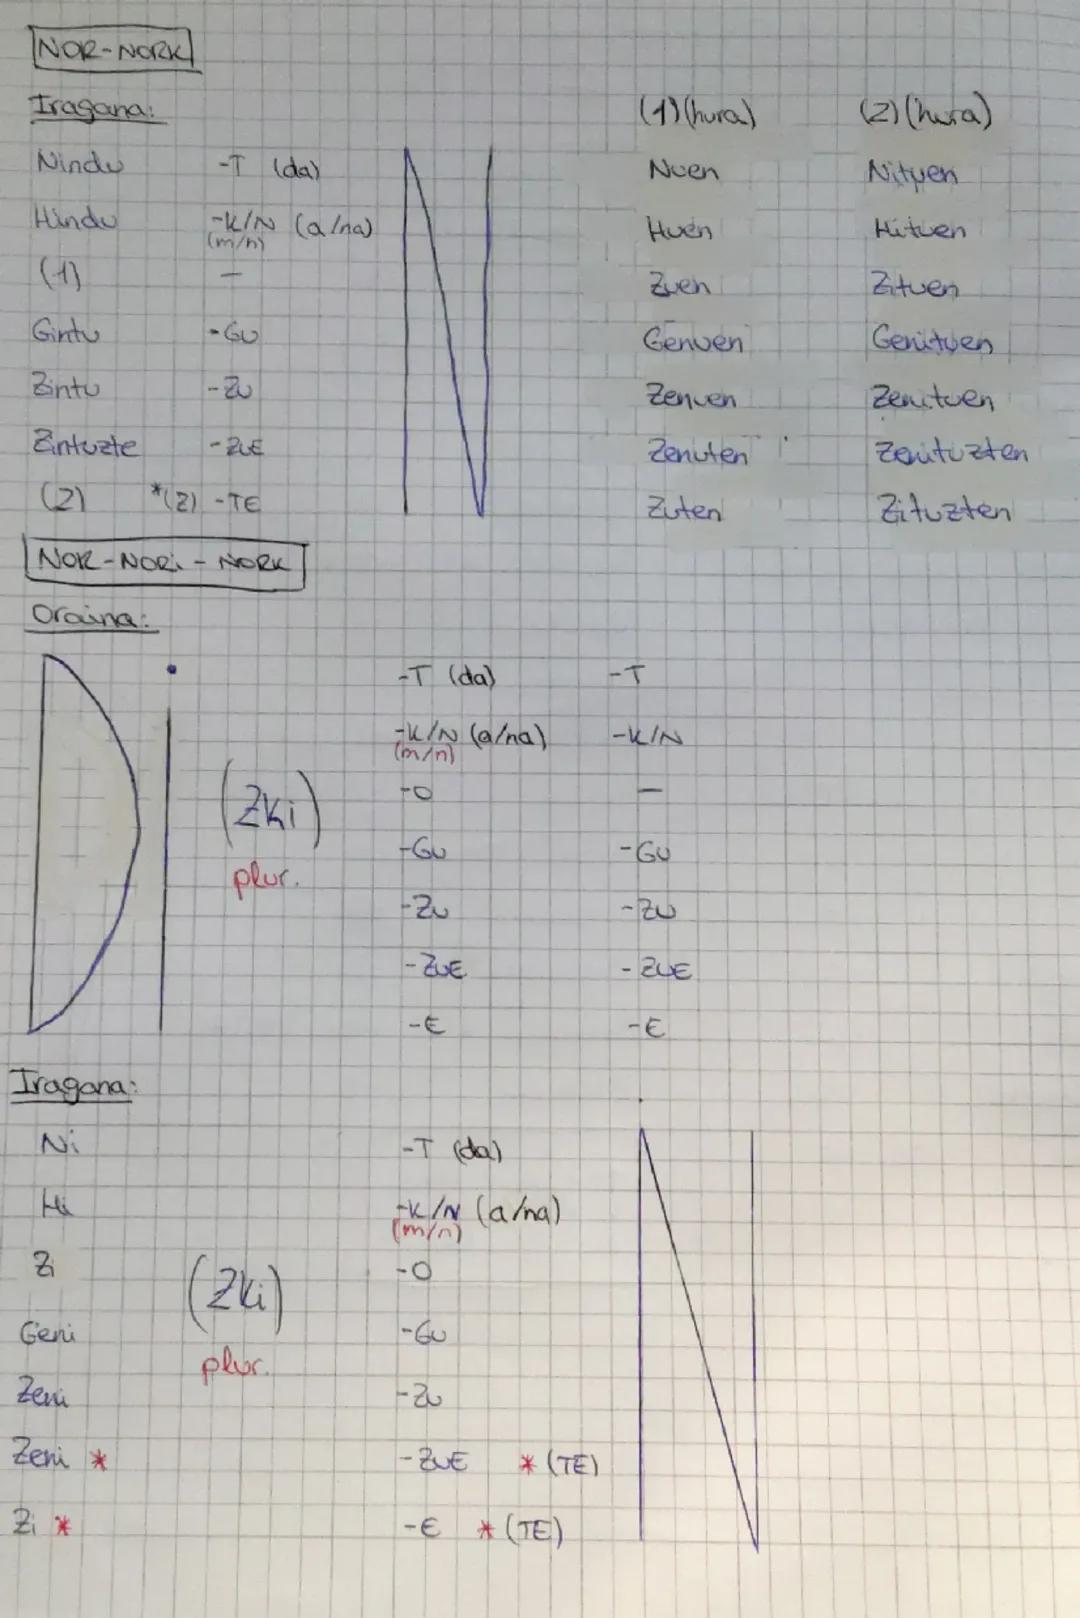 NOR-NORK
Iragana: (1)(hura) (2)(hura)
Nindu -T (da) Nuen Nituen
Hindu -K/N (a/na) Huen Hituen
(m/n)
(1) — Zuen Zituen
Gintu -GU Genuen Genituen
Zintu -ZU Zenuen Zenituen
Zintuzte -ZUE Zenuten Zenituzten
(2) *(Z) -TE Zuten Zituzten
N
NOR-NORi-NORK
Oraina:
D i
-T (da) -T
-K/N (a/na) -K/N
(m/n)
(Zki) -O —
plur. -GU -GU
-ZU -ZU
-ZUE -ZUE
-E -E
Iragana:
Ni -T (da)
Hi -K/N (a/na)
(m/n)
Zi (Zki) -O
Geni plur. -GU
Zeni -ZU
Zeni * -ZUE * (TE)
Zi * -E * (TE)
N